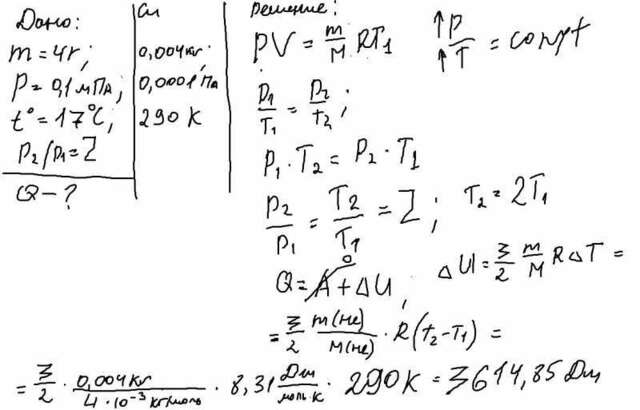 Дано:
m = 4г;
P = 0,1 мПа;
t° = 17°C;
P2/P1 = 2
Q - ?
Си
0,004кг
0,0001 Па
290 К
Решение:
PV = m/M RT1
↑P/↑T = const
P1/T1 = P2/t2;
P1 · T2 = P2 · T1
P2/P1 = T2/T1 = 2; T2 = 2T1
Q = A + ΔU; ΔU = 3/2 m/M RΔT =
0
= 3/2 m(He)/M(He) · R(t2 - T1) =
= 3/2 · 0,004кг/4·10⁻³ кг/моль · 8,31 Дж/моль·К · 290К = 3614,85 Дж